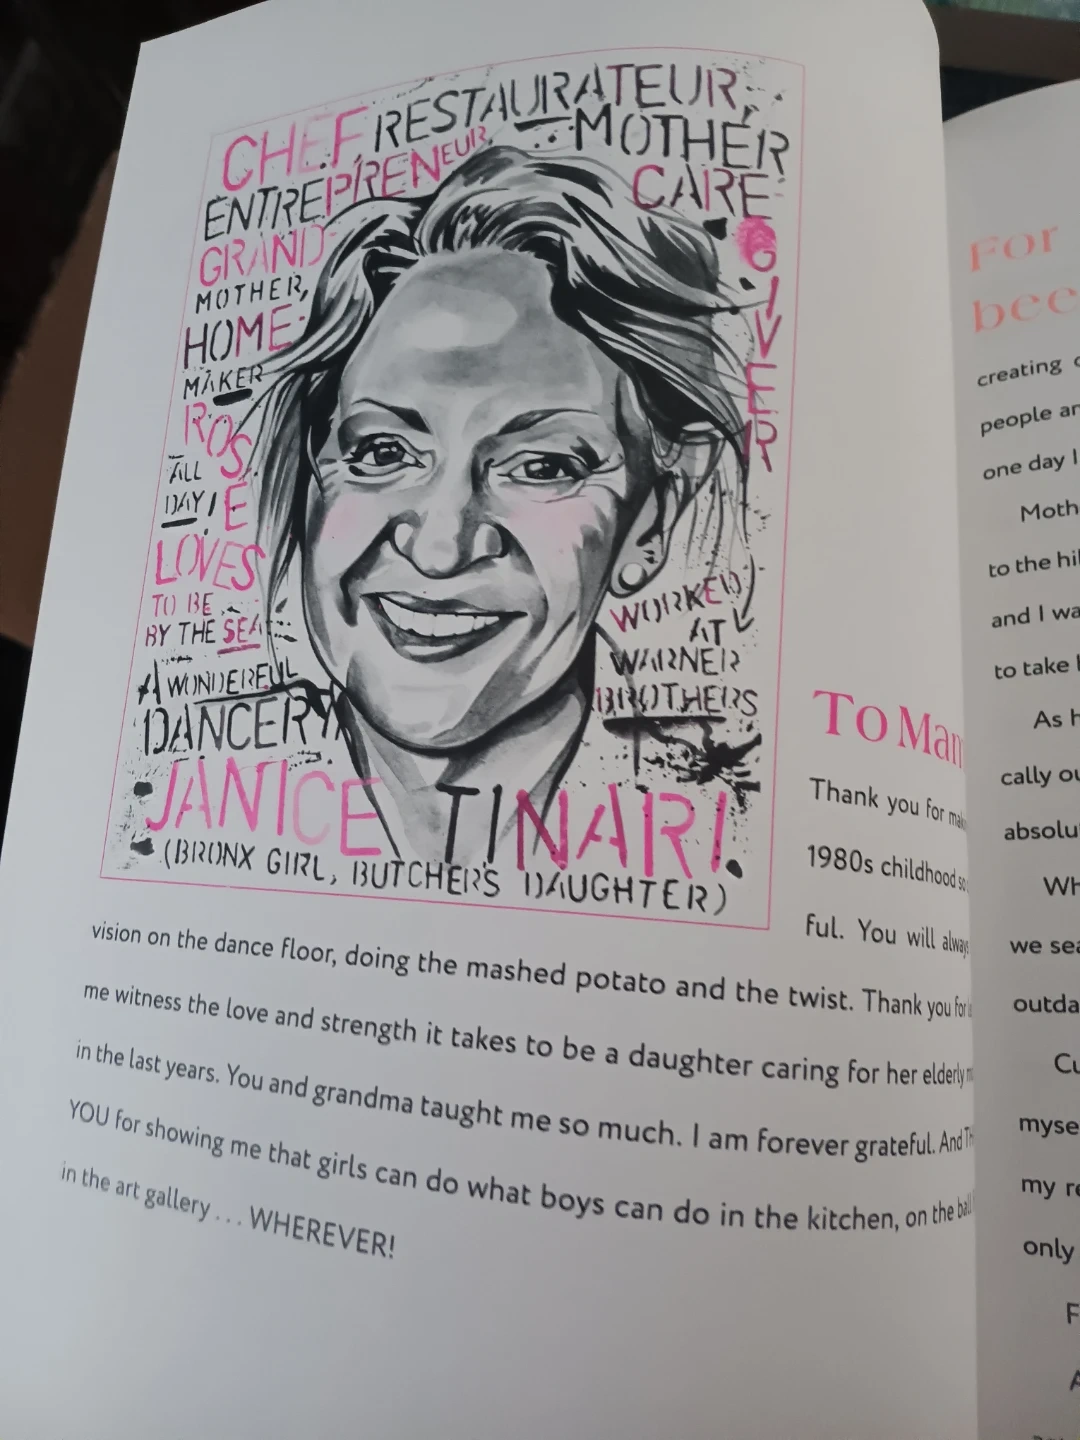 CHEF, RESTAURATEUR,
MOTHER
ENTREPRENEUR,
CARE-
GIVER
GRAND-
MOTHER,
HOME-
MAKER
ROSE
ALL
DAY!
LOVES
TO BE
BY THE SEA
A WONDERFUL
DANCER
WORKED
AT
WARNER
BROTHERS
JANICE TINARI.
(BRONX GIRL, BUTCHER'S DAUGHTER)
TO
Thank you for
1980s childhood
ful. You will
vision on the dance floor, doing the mashed potato and the twist. Thank you for
me witness the love and strength it takes to be a daughter caring for her elderly
in the last years. You and grandma taught me so much. I am forever grateful. And
YOU for showing me that girls can do what boys can do in the kitchen, on the
in the art gallery . . . WHEREVER!
For
creating
people
one day I
to the
and I
to take
As
we
my
only